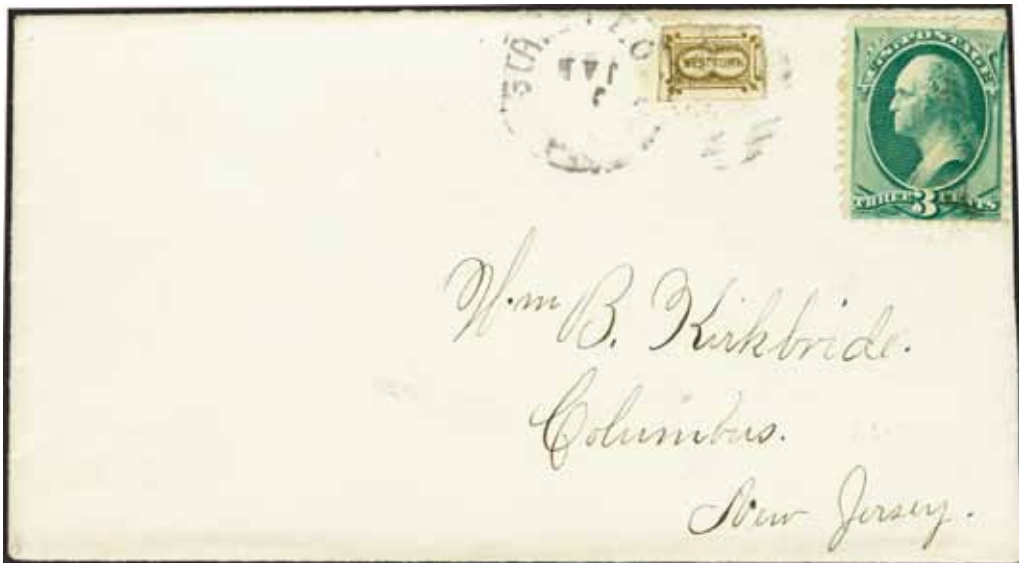 JAN
WESTTOWN
U.S. POSTAGE
THREE 3 CENTS
Wm B. Kirkbride.
Columbus.
New Jersey.